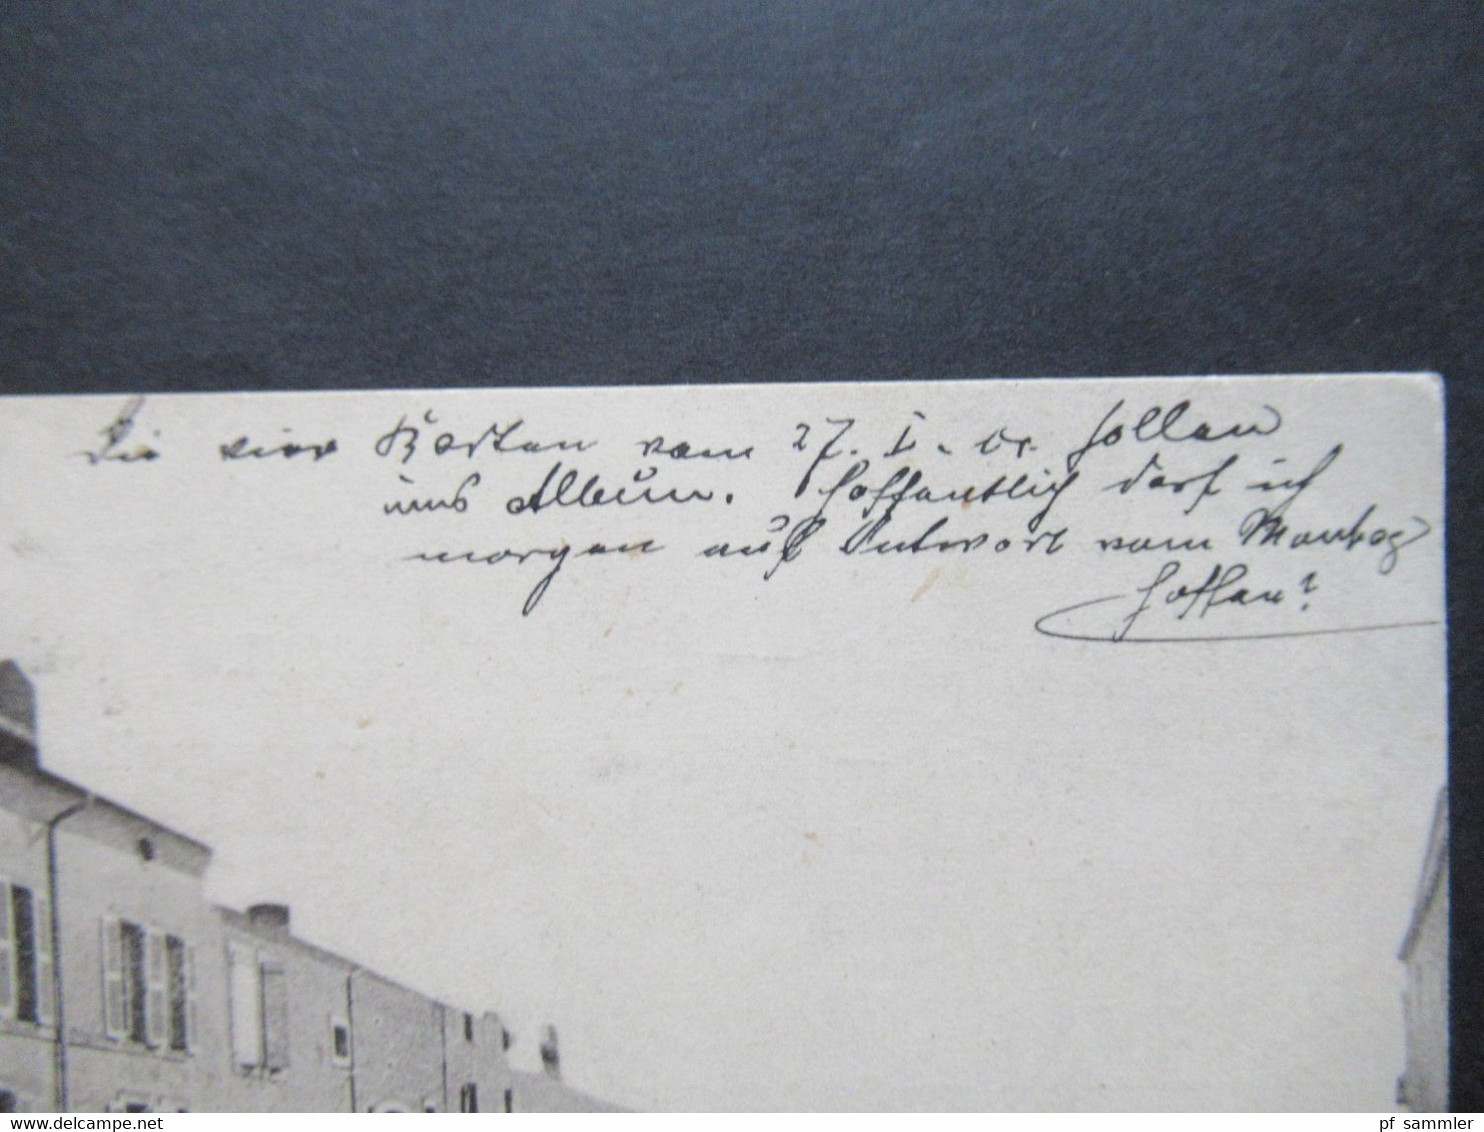 Die vier Karten vom 27. I. 01. sollen
ins Album. Hoffentlich darf ich
morgen auf Antwort vom Montag
hoffen?
www.delcampe.net
pf_sammler